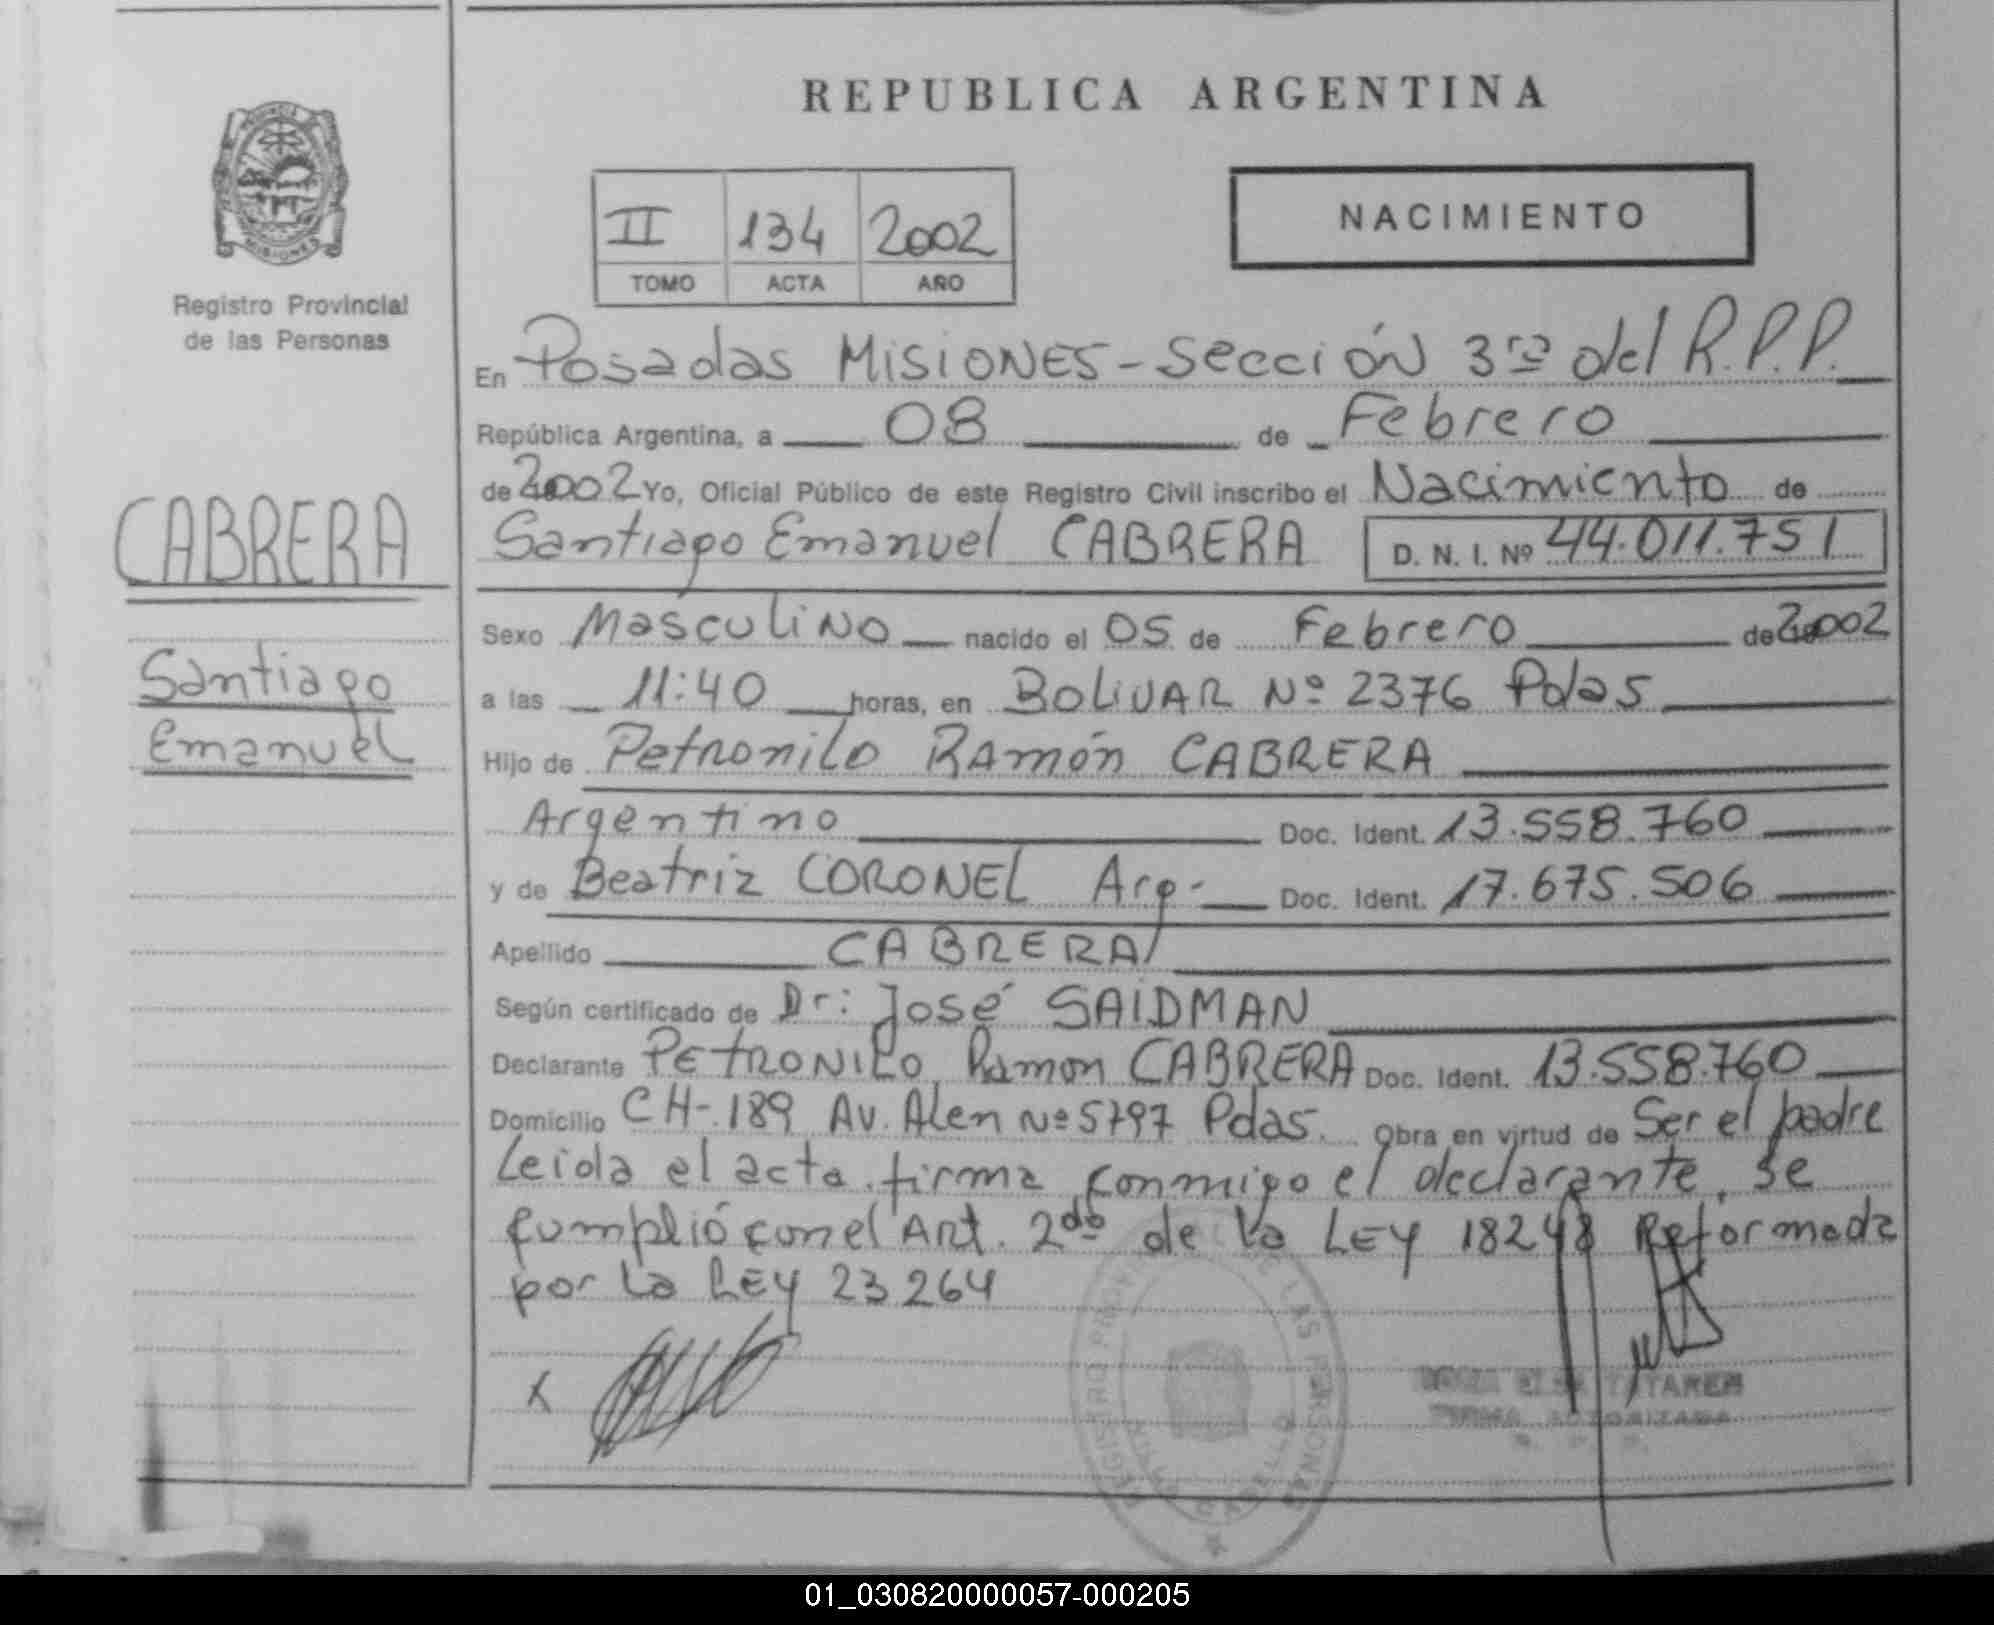 REPUBLICA ARGENTINA
II 134 2002
TOMO ACTA AÑO
NACIMIENTO
Registro Provincial
de las Personas
CABRERA
Santiago
Emanuel
En Posadas MISIONES - Sección 3ra del R.P.P.
República Argentina, a 08 de Febrero
de 2002 Yo, Oficial Público de este Registro Civil inscribo el Nacimiento de
Santiago Emanuel CABRERA D. N. I. Nº 44.011.751
Sexo Masculino nacido el 05 de Febrero de 2002
a las 11:40 horas, en BOLIVAR Nº 2376 Pdas
Hijo de Petronilo Ramón CABRERA
Argentino Doc. Ident. 13.558.760
y de Beatriz CORONEL Arg- Doc. Ident. 17.675.506
Apellido CABRERA
Según certificado de Dr: José SAIDMAN
Declarante PETRONILO Ramon CABRERA Doc. Ident. 13.558.760
Domicilio CH-189 Av. Alen Nº 5797 Pdas. Obra en virtud de Ser el padre
Leida el acta firma conmigo el declarante, se
cumplió con el Art. 2do de la LEY 18248 Reformada
por la LEY 23264
X
REGISTRO LAS PERSONAS
01_030820000057-000205